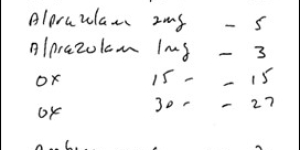 Alprazolam 2mg - 5
Alprazolam 1mg - 3
OX 15 - - 15
OX 30 - - 27